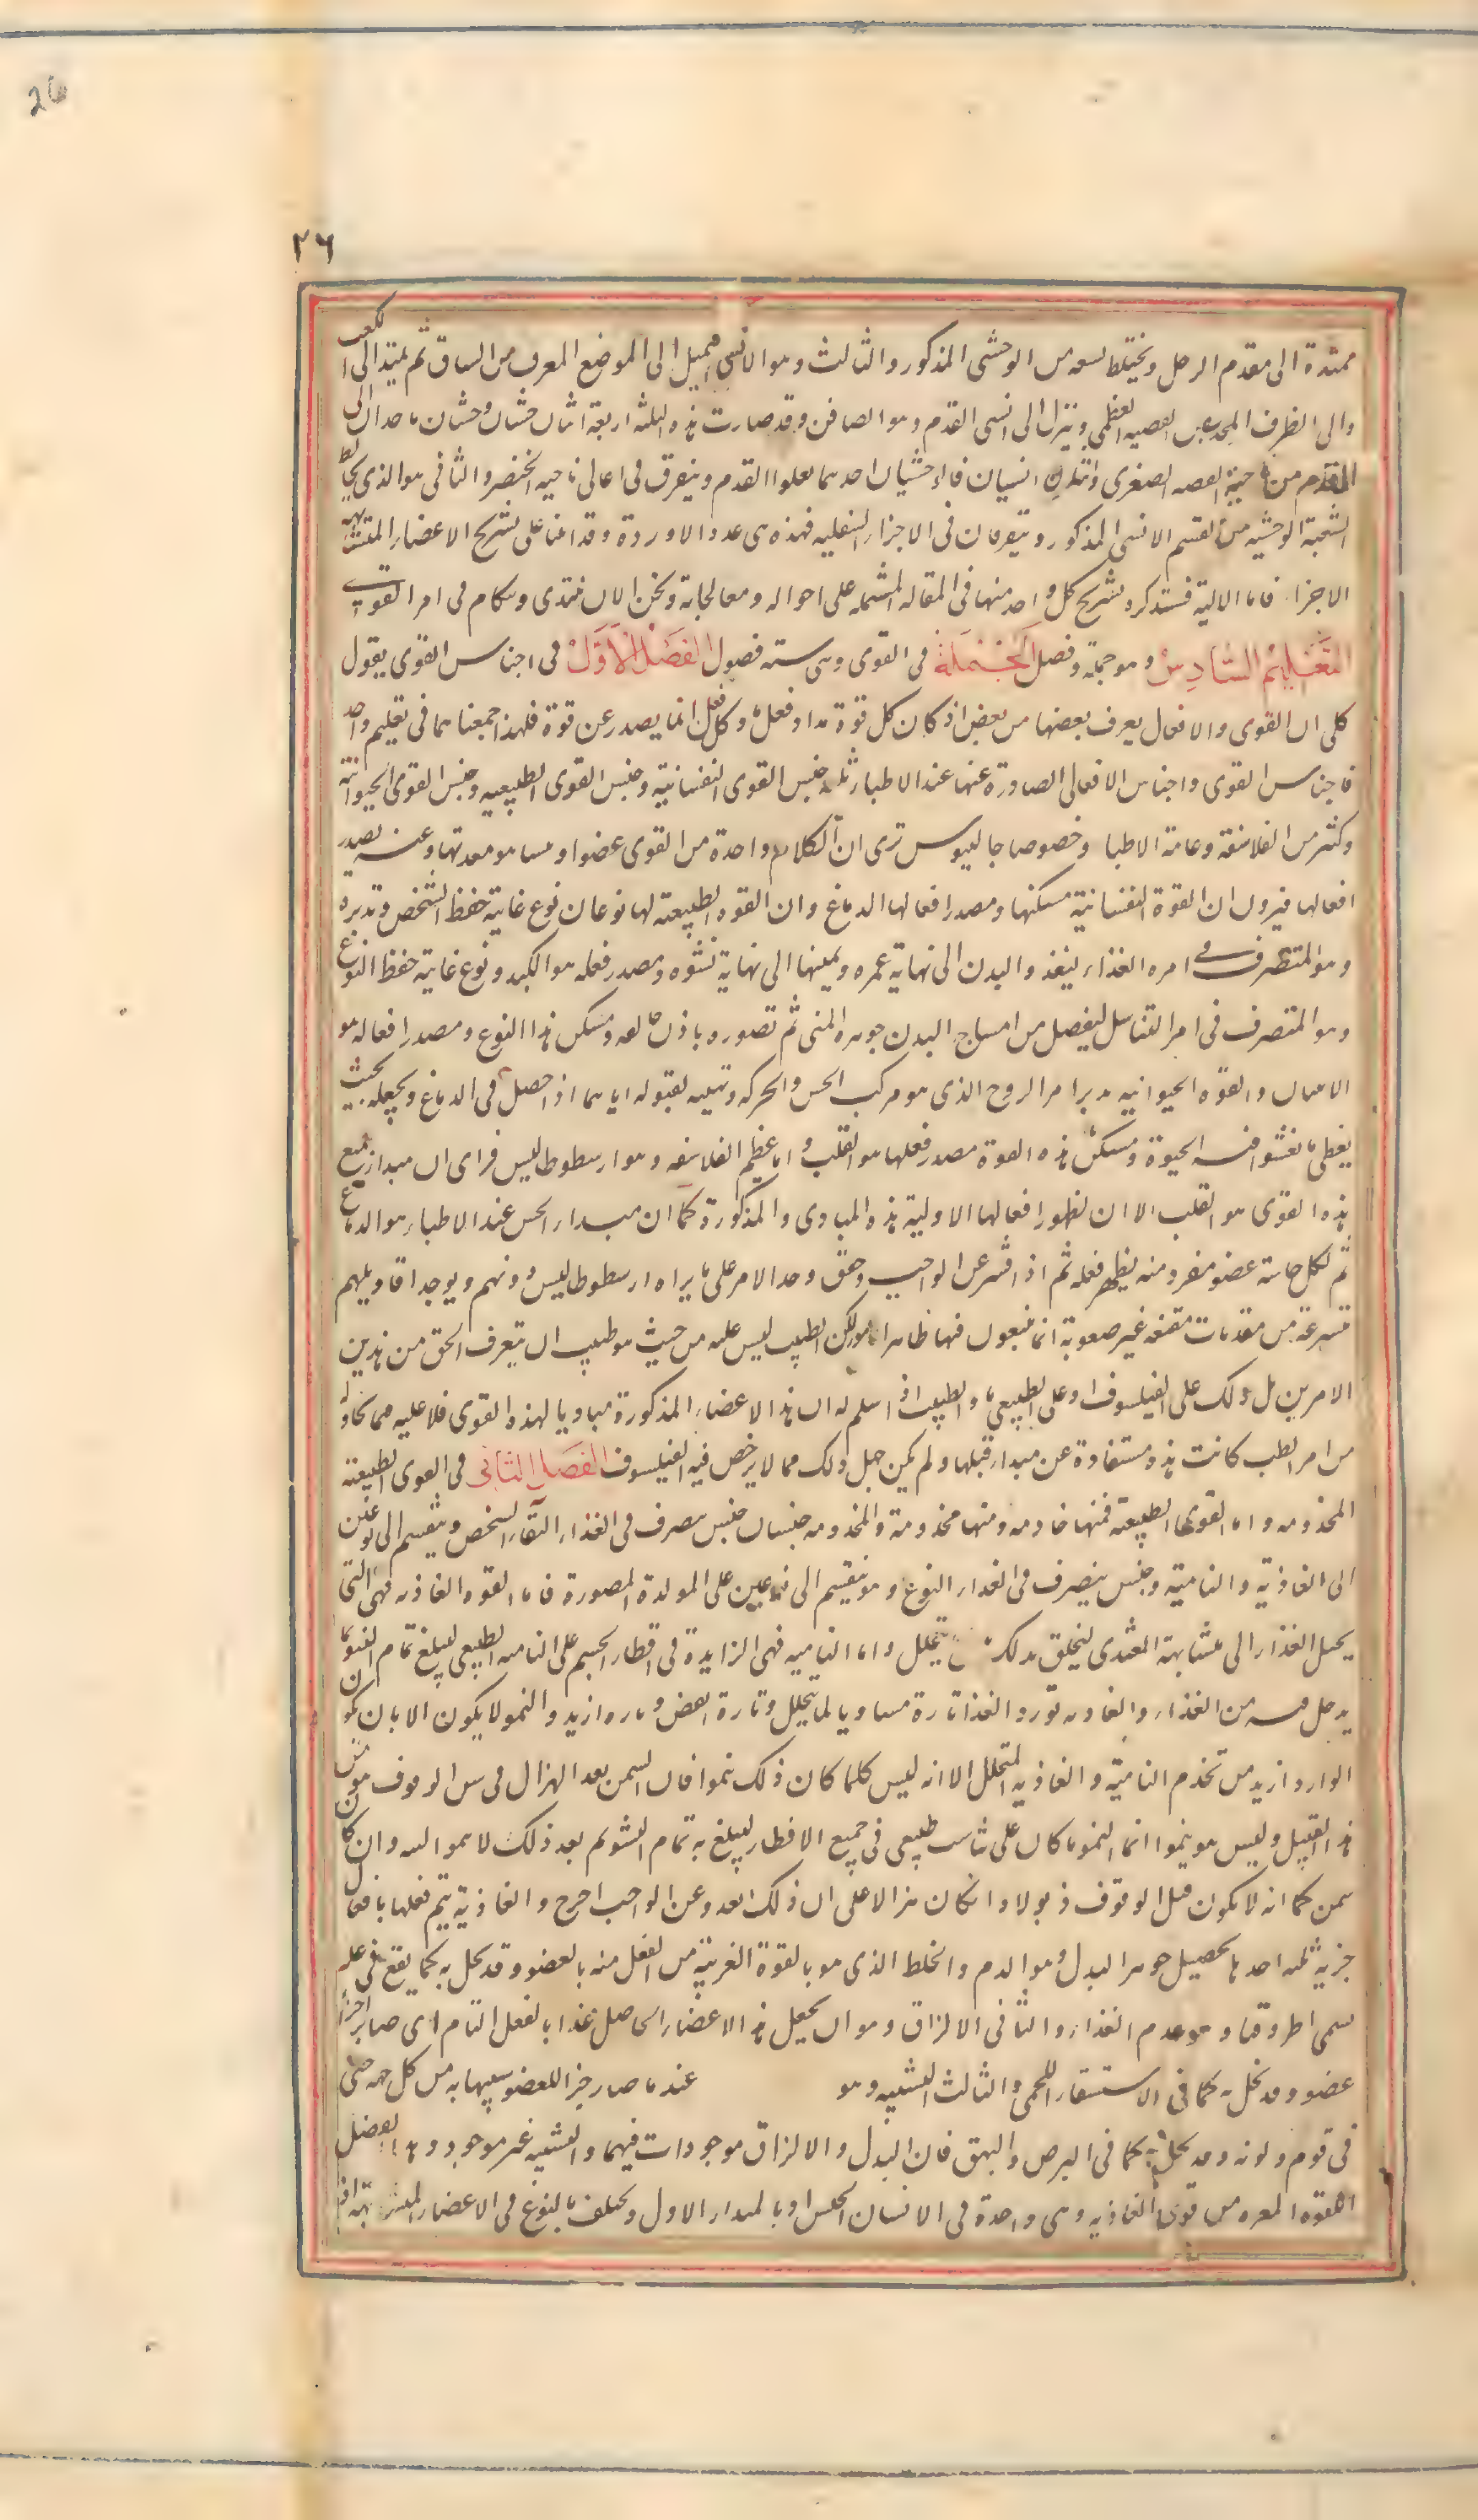 26
٢٦
ممتدة الى مقدم الرجل ويختلط بشعبه من الوحشي المذكور والثالث وهو الانسي فيميل الى الموضع المعرق من الساق ثم يمتد الى الكعب
والى الطرف المحدب من القصبه العظمى وينزل الى انسي القدم وهو الصافن وقد صارت هذه الثلثه اربعة اثنان وحشيان احدهما الى
القدم من ناحية القصبه الصغرى واثنان انسيان فالوحشيان احدهما يعلوا القدم ويتفرق في اعالى ناحيه الخنصر والثاني هو الذي يخالط
الشعبة الوحشيه من القسم الانسي المذكور ويتفرقان في الاجزاء السفليه فهذه هي عدد الاوردة وقد اتينا على تشريح الاعضاء المتشابهة
الاجزاء فاما الالية فستذكر تشريح كل واحد منها في المقاله المشتمله على احواله ومعالجاته ونحن الان نبتدى ونتكلم في امر القوى
التعليم السادس وهو جملة وفصل الجملة في القوى وهى سته فصول الفصل الاول في اجناس القوى بقول
كلى ان القوى والافعال يعرف بعضها من بعض اذ كان كل قوة مبدا فعل ما وكل فعل انما يصدر عن قوة فلهذا جمعناهما في تعليم واحد
فاجناس القوى واجناس الافعال الصادرة عنها عند الاطباء ثلثه جنس القوى النفسانية وجنس القوى الطبيعيه وجنس القوى الحيوانية
وكثير من الفلاسفة وعامة الاطباء وخصوصا جالينوس ترى ان لكل واحدة من القوى عضوا رئيسا هو معدنها وعنه يصدر
افعالها فيرون ان القوة النفسانية مسكنها ومصدر افعالها الدماغ وان القوه الطبيعته لها نوعان نوع غايته حفظ الشخص وتدبيره
وهو المتصرف في امره الغذاء ليغذو البدن الى نهاية عمره وينميها الى نهاية نشوه ومصدر فعله هو الكبد ونوع غايته حفظ النوع
وهو المتصرف في امر التناسل ليفصل من امشاج البدن جوهر المنى ثم تصوره باذن خالقه ومسكن هذا النوع ومصدر افعاله هو
الانثيان والقوة الحيوانيه تدبر امر الروح الذي هو مركب الحس والحركه وتهيئه لقبوله اياهما اذا حصل في الدماغ ويجعله بحيث
يعطى ما يفشوا فيه الحيوة ومسكن هذه القوة مصدر فعلها هو القلب واما عظيم الفلاسفه وهو ارسطوطاليس فراى ان مبدا جميع
هذه القوى هو القلب الا ان لظهور افعالها الاولية هذه المبادى والمذكورة كما ان مبداء الحس عند الاطباء هو الدماغ
ثم لكل حاسة عضو مفرد منه يظهر فعله ثم اذا فتش عن الواجب وحقق وجد الامر على ما يراه ارسطوطاليس دونهم ويوجد اقاويلهم
منتزعة من مقدمات مقنعه غير صعوبة انما يتبعون فيها ظاهرا ولكن الطبيب ليس عليه من حيث هو طبيب ان يتعرف الحق من هذين
الامرين بل ذلك على الفيلسوف او على الطبيعي والطبيب اذا سلم له ان هذا الاعضاء المذكورة مباديا لهذه القوى فلا عليه مما يحاوله
من امر الطب كانت هذه مستفادة عن مبداء قبلها ولم يكن جهل ذلك مما لا يرخص فيه الفيلسوف الفصل الثاني في القوى الطبيعة
المخدومه واما القوى الطبيعته فمنها خادمه ومنها مخدومة والمخدومه جنسان جنس يتصرف في الغذاء لبقاء الشخص وينقسم الى نوعين
الى الغاذية والنامية وجنس يتصرف في الغذاء النوع وهو ينقسم الى نوعين على المولدة المصورة فاما القوه الغاذيه فهى التى
يحيل الغذاء الى مشابهة المغتذى ليخلق بدلك ما يتحلل واما الناميه فهى الزايدة في اقطار الجسم على التناسب الطبيعى ليبلغ تمام النشو بما
يدخل فيه من الغذاء والغاذيه تورد الغذا تارة مساويا لما يتحلل وتارة انقص وتاره ازيد والنمو لا يكون الا بان يكون
الوارد ازيد من تخدم النامية والغاذيه المتحلل الا انه ليس كلما كان ذلك نموا فان السمن بعد الهزال في سن الوقوف هو من
هذا القبيل وليس هو ينموا انما النمو ما كان على تناسب طبيعى في جميع الاقطار ليبلغ به تمام النشو ثم بعد ذلك لا نمو البته وان كان
سمن كما انه لا يكون قبل الوقوف ذبولا وانكان هزالا على ان ذلك ابعد وعن الواجب اخرج والغاذية يتم فعلها بافعال
جزية ثلثه احدها تحصيل جوهر البدل وهو الدم والخلط الذي هو بالقوة القريبة من الفعل منه بالعضو وقد يخل به كما يقع في عله
يسمى اطروقيا وهو عدم الغذاء والثاني الالزاق وهو ان يجعل هذا الاعضاء الحاصل غذا بالفعل التام اى صاير اجزا
عضو وقد يخل به كما في الاستسقاء اللحمى والثالث التشبيه وهو عند ما صار جزا للعضو سبيها به من كل جهة حتى
في قوم ولونه وقد يخل به كما في البرص والبهق فان البدل والالزاق موجودات فيهما والتشبيه غير موجود وهذا الفصل
القوه المغيره من قوى الغاذيه وهى واحدة في الانسان الجنس او بالمبداء الاول ويختلف بالنوع في الاعضاء المتشابهة اذ